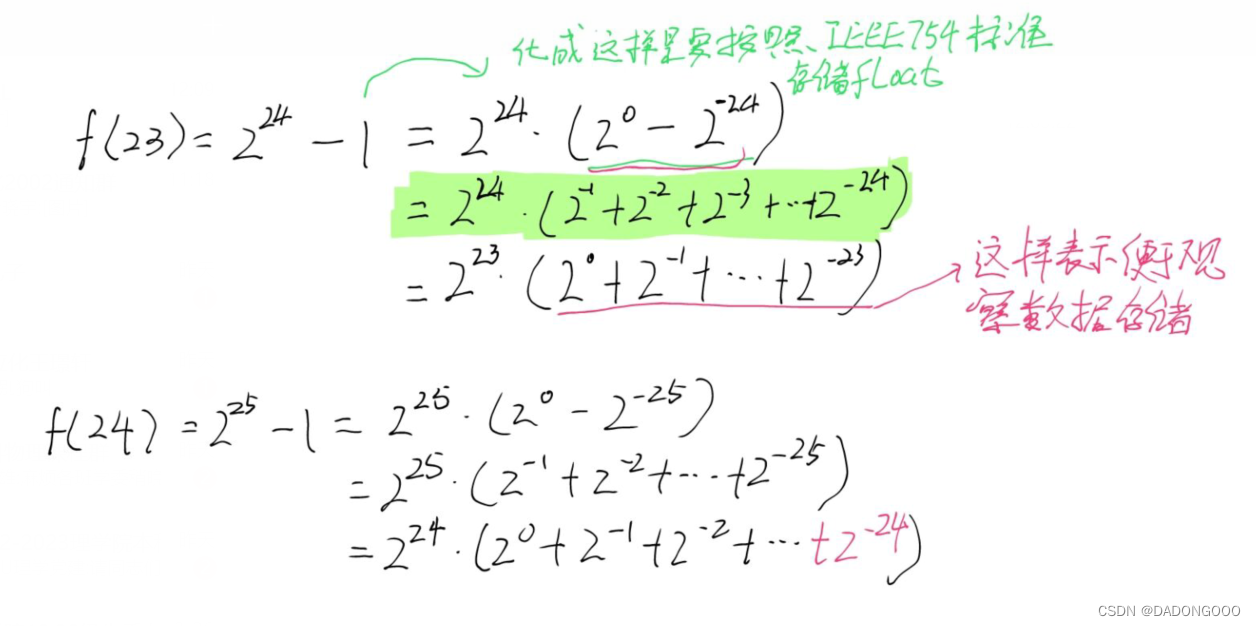 化成这样是要按照、IEEE754标准
存储float
f(23) = 2^24 - 1 = 2^24 · (2^0 - 2^-24)
= 2^24 · (2^-1 + 2^-2 + 2^-3 + … + 2^-24)
= 2^23 · (2^0 + 2^-1 + … + 2^-23)
这样表示便于观
察数据存储
f(24) = 2^25 - 1 = 2^25 · (2^0 - 2^-25)
= 2^25 · (2^-1 + 2^-2 + … + 2^-25)
= 2^24 · (2^0 + 2^-1 + 2^-2 + … + 2^-24)
CSDN @DADONGOOO